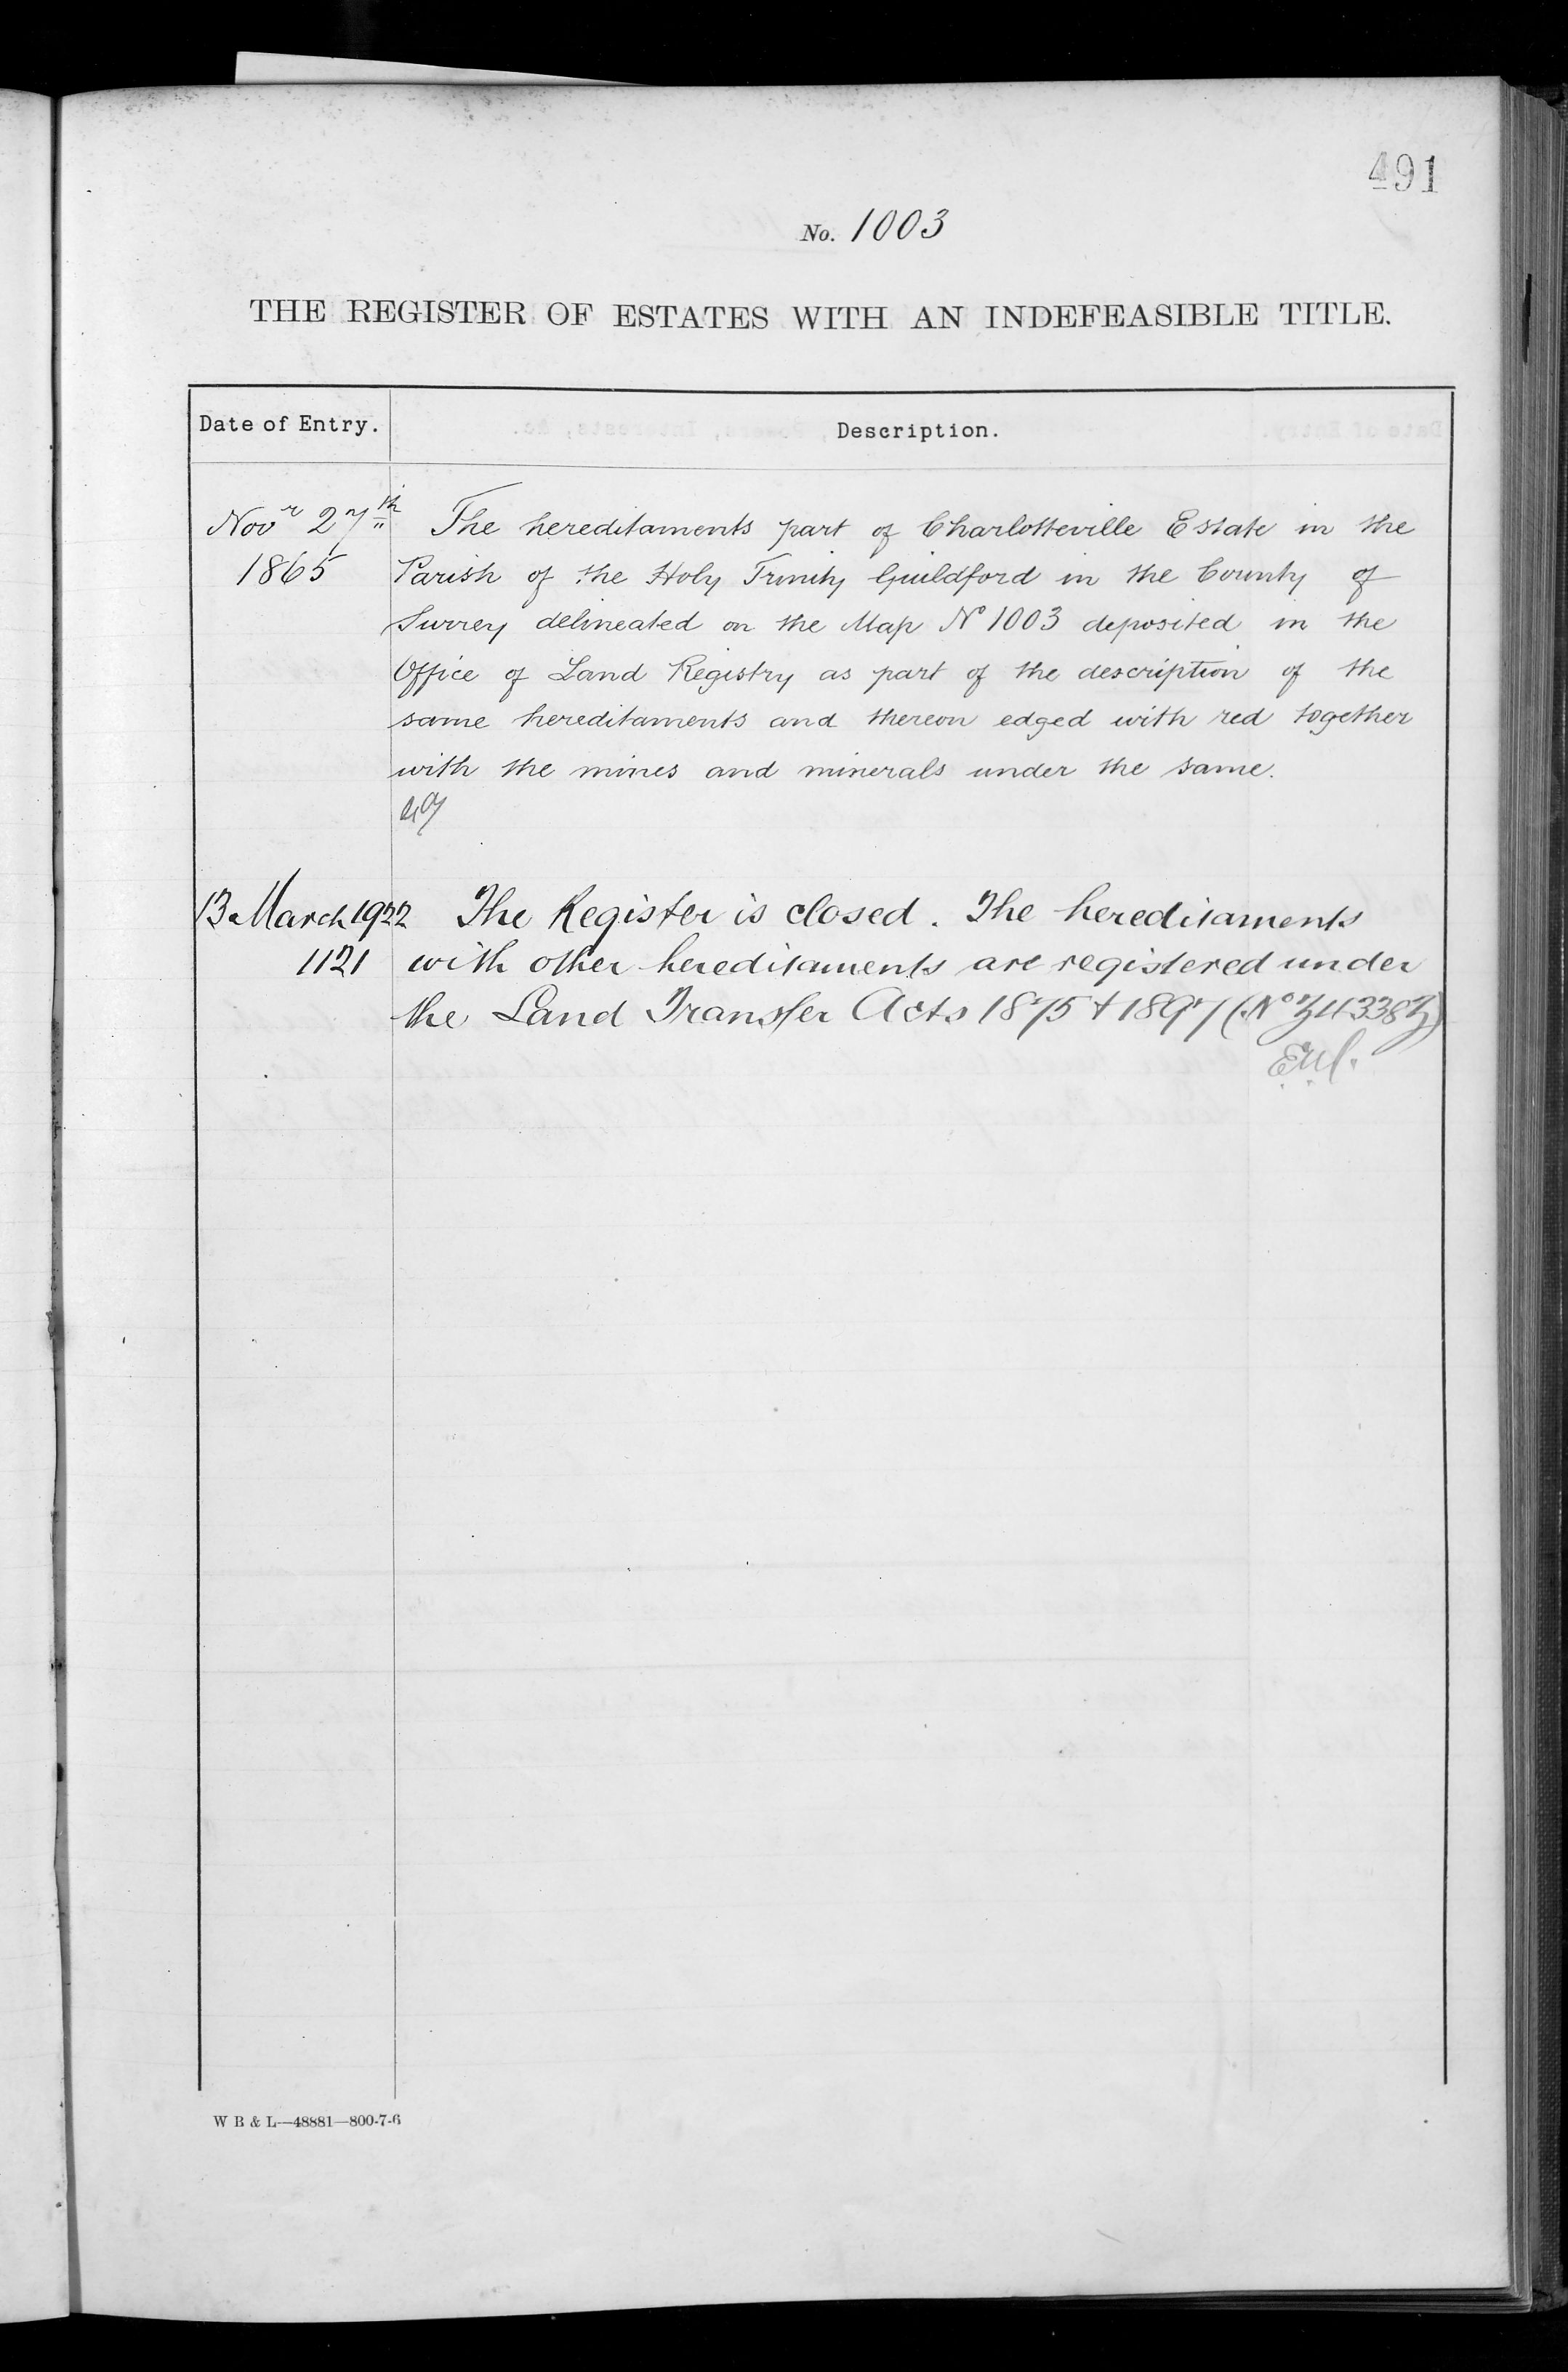 491
No. 1003
THE REGISTER OF ESTATES WITH AN INDEFEASIBLE TITLE.
Date of Entry.
Description.
Novr 27th
1865
The hereditaments part of Charlotteville Estate in the
Parish of the Holy Trinity Guildford in the County of
Surrey delineated on the Map No 1003 deposited in the
Office of Land Registry as part of the description of the
same hereditaments and thereon edged with red together
with the mines and minerals under the same.
13 March 1922
1121
The Register is closed. The hereditaments
with other hereditaments are registered under
the Land Transfer Acts 1875 & 1897 (No
W B & L—48881—800-7-6